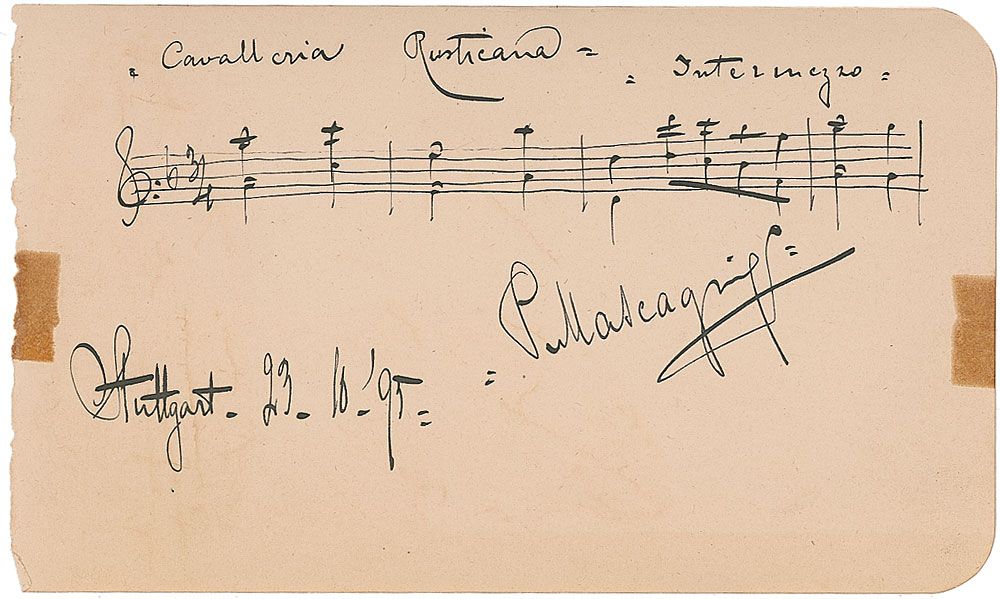 Cavalleria Rusticana = = Intermezzo =
3 4
P. Mascagni =
Stuttgart - 23 - 10 - '95 =